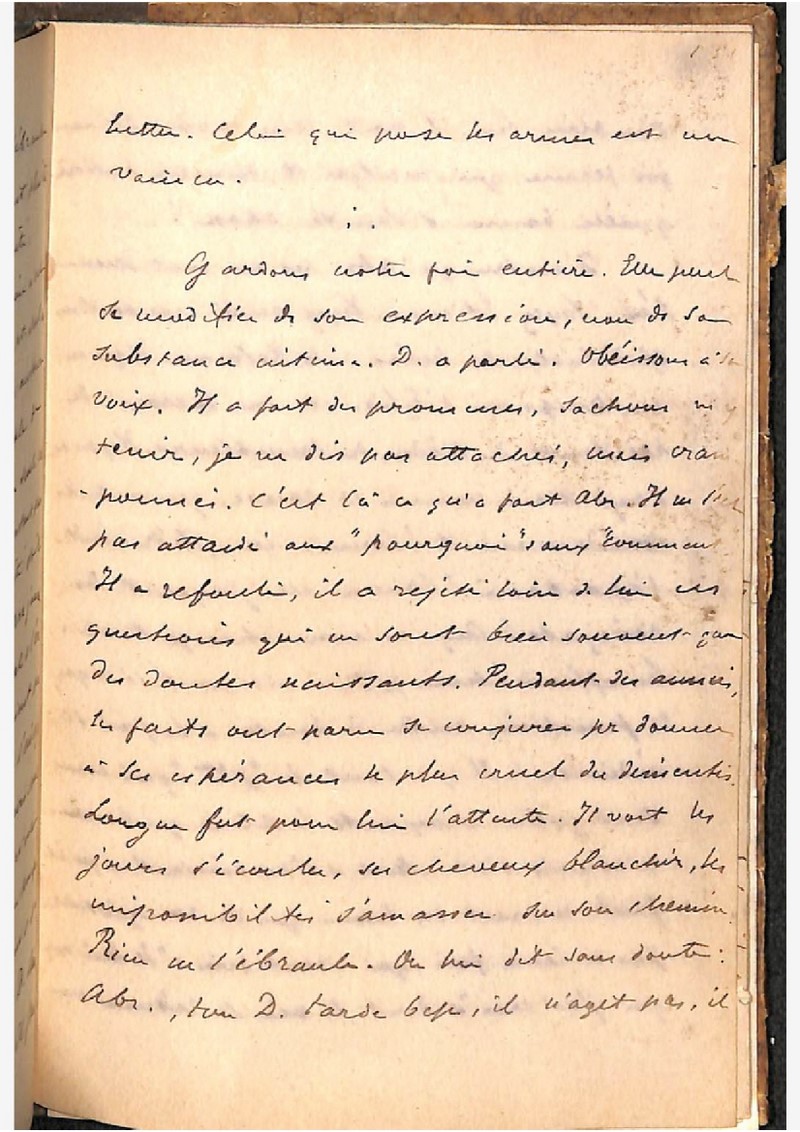 lutter. Celui qui pose les armes est un
vaincu.
Gardons notre foi entière. Elle peut
se modifier ds son expression, non ds sa
substance intime. D. a parlé. Obéissons à sa
voix. Il a fait des promesses, sachons n/ y
tenir, je ne dis pas attachés, mais cram
-ponnés. C'est là ce qu'a fait Abr. Il ne s'est
pas attardé aux "pourquoi" aux "comment".
Il a refoulé, il a rejeté loin de lui ces
questions qui ne sont bien souvent que
des doutes naissants. Pendant des années,
les faits ont paru se conjurer pr donner
à ses espérances le plus cruel des démentis.
Longue fut pour lui l'attente. Il voit les
jours s'écouler, ses cheveux blanchir, les
impossibilités s'amasser sur son chemin.
Rien ne l'ébranle. On lui dit sans doute :
Abr., ton D. tarde bcp, il n'agit pas, il